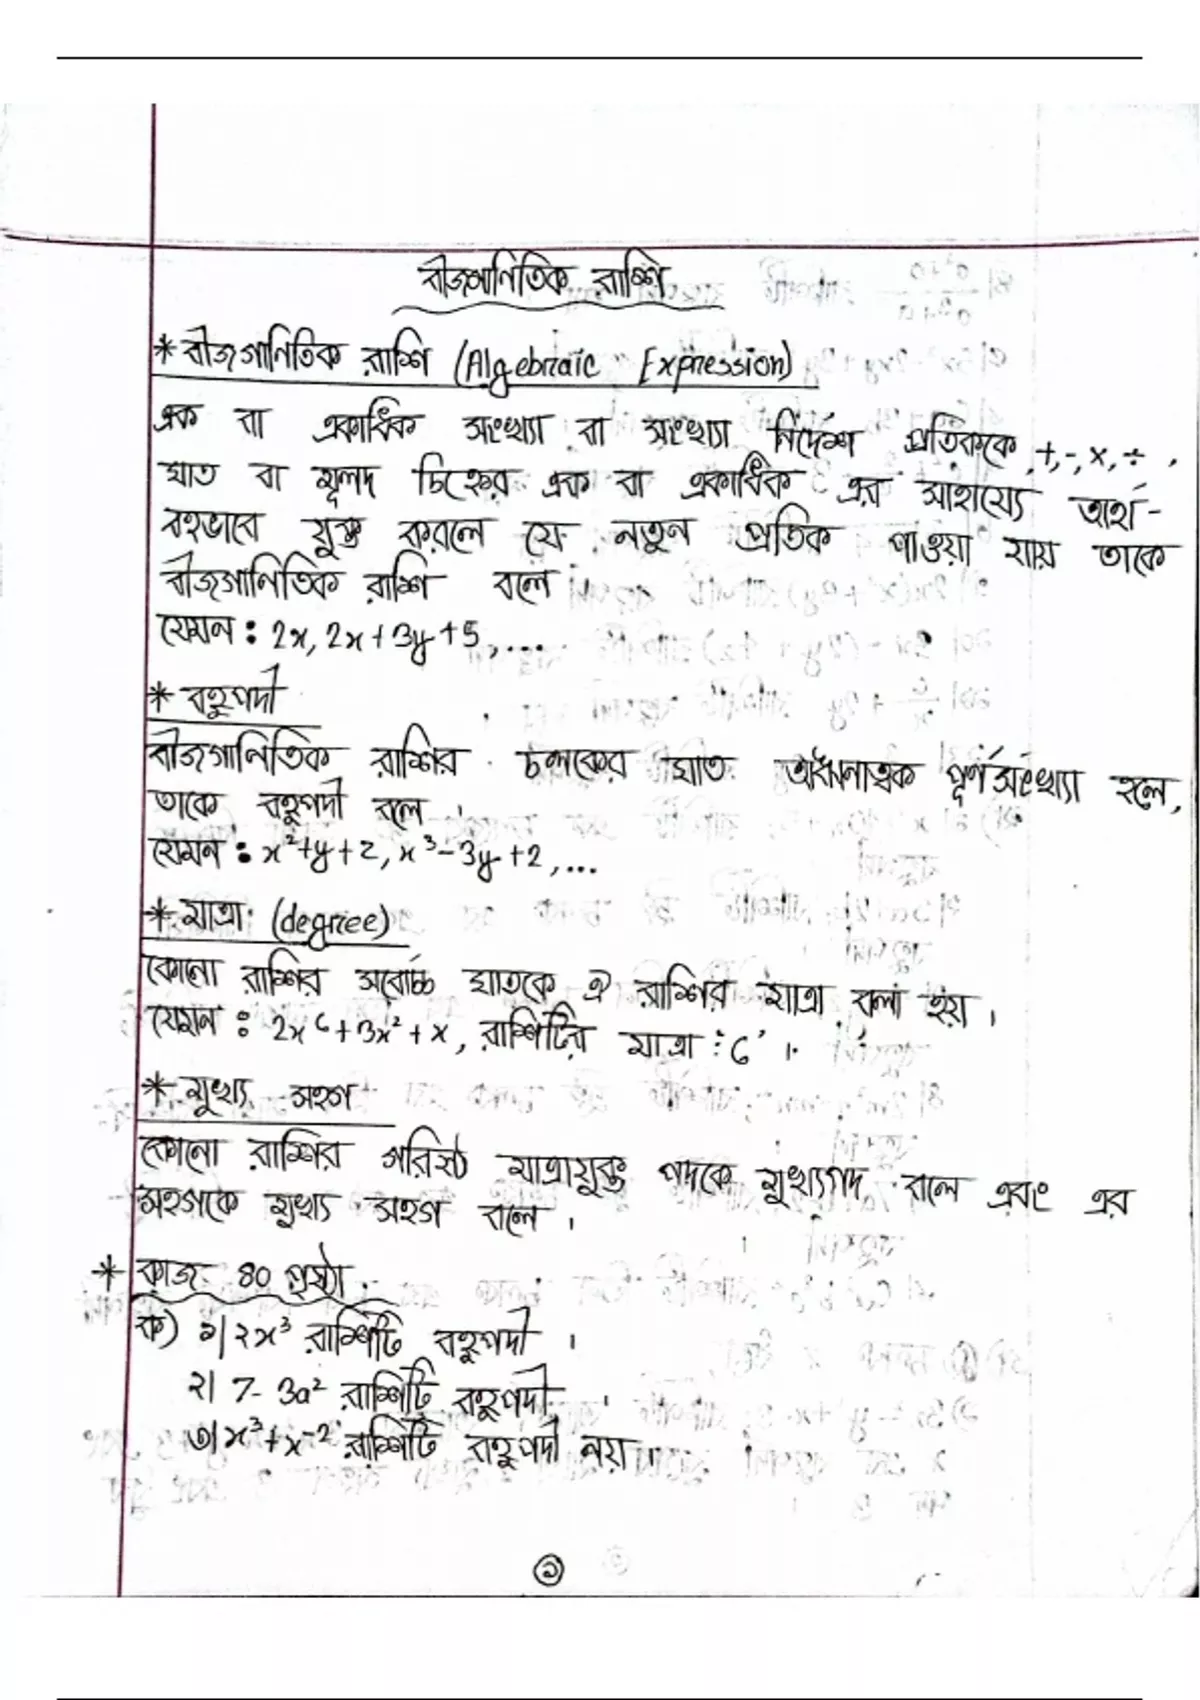 বীজগাণিতিক রাশি
* বীজগাণিতিক রাশি (Algebraic Expression)
এক বা একাধিক সংখ্যা বা সংখ্যা নির্দেশ প্রতিককে, +, -, ×, ÷ ,
ঘাত বা মূলদ চিহ্নের এক বা একাধিক এর সাহায্যে অর্থ-
বহভাবে যুক্ত করলে যে নতুন প্রতিক পাওয়া যায় তাকে
বীজগাণিতিক রাশি বলে ।
যেমন : 2x, 2x + 3y + 5, ....
* বহুপদী
বীজগাণিতিক রাশির চলকের ঘাত অঋণাত্বক পূর্ণসংখ্যা হলে,
তাকে বহুপদী বলে ।
যেমন : x²+y+2, x³-3y+2, ...
* মাত্রা (degree)
কোনো রাশির সর্বোচ্চ ঘাতকে ঐ রাশির মাত্রা বলা হয় ।
যেমন : 2x⁶ + 3x² + x, রাশিটির মাত্রা '6' ।
* মুখ্য সহগ
কোনো রাশির গরিষ্ঠ মাত্রাযুক্ত পদকে মুখ্যপদ বলে এবং এর
সহগকে মুখ্য সহগ বলে ।
* কাজ 80 পৃষ্ঠা
ক) ১| ২x³ রাশিটি বহুপদী ।
২| 7 - 3a² রাশিটি বহুপদী ।
৩| x³+x⁻² রাশিটি বহুপদী নয় ।
১